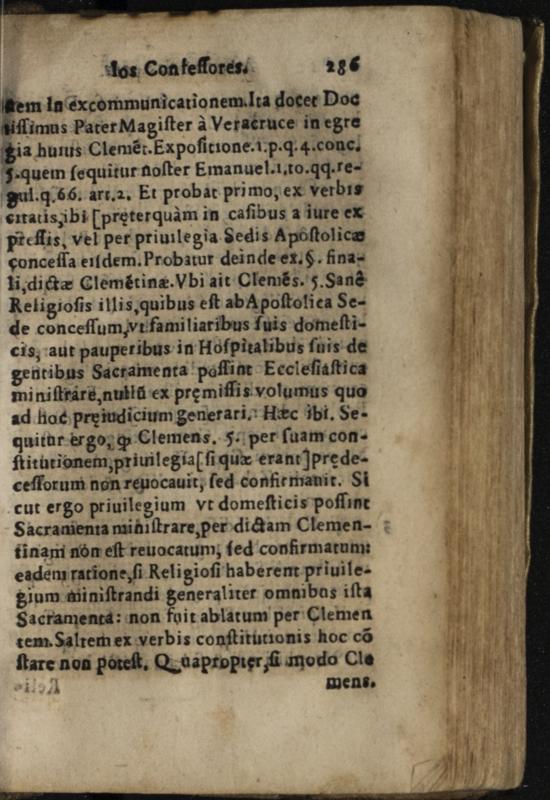 los Confessores. 286
tem In excommunicationem. Ita docet Doc
tissimus Pater Magister à Veracruce in egre
gia huius Clemẽt. Expositione. 1. p. q. 4. conc.
5. quem sequitur noster Emanuel. 1. to. qq. re-
gul. q. 66. art. 2. Et probat primo, ex verbis
citatis, ibi [pręterquàm in casibus a iure ex
pressis, vel per priuilegia Sedis Apostolicæ
concessa eisdem. Probatur deinde ex. §. fina-
li, dictæ Clemẽtinæ. Vbi ait Clemẽs. 5. Sanè
Religiosis illis, quibus est ab Apostolica Se-
de concessum, vt familiaribus suis domesti-
cis, aut pauperibus in Hospitalibus suis de
gentibus Sacramenta possint Ecclesiastica
ministrare, nullũ ex pręmissis volumus quo
ad hoc pręiudicium generari. Hæc ibi. Se-
quitur ergo, ꝙ Clemens. 5. per suam con-
stitutionem, priuilegia [si quæ erant] pręde-
cessorum non reuocauit, sed confirmauit. Si
cut ergo priuilegium vt domesticis possint
Sacramenta ministrare, per dictam Clemen-
tinam non est reuocatum, sed confirmatum:
eadem ratione, si Religiosi haberent priuile-
gium ministrandi generaliter omnibus ista
Sacramenta: non fuit ablatum per Clemen
tem. Saltem ex verbis constitutionis hoc cõ
stare non potest. Quapropter, si modo Cle
mens.